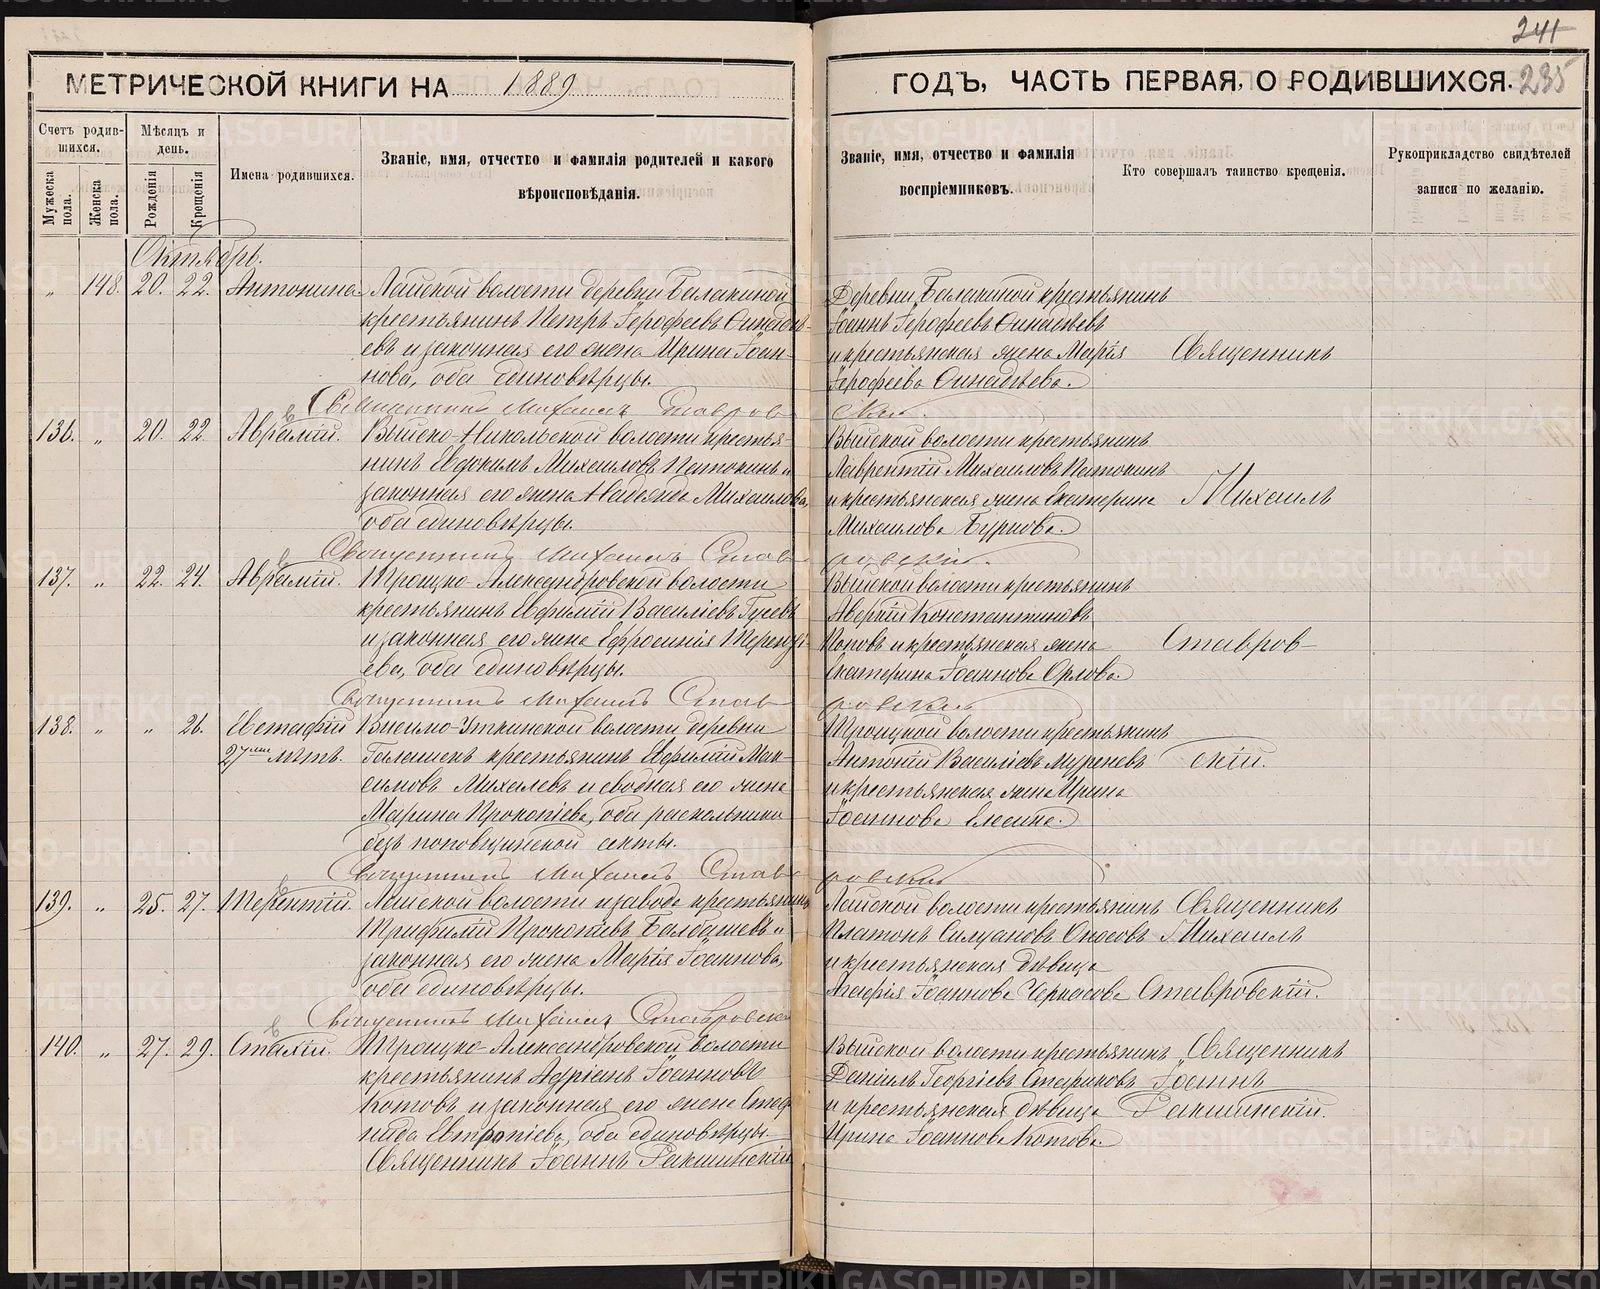 241
МЕТРИЧЕСКОЙ КНИГИ НА 1889
ГОДЪ, ЧАСТЬ ПЕРВАЯ, О РОДИВШИХСЯ. 235
Счетъ родив-
шихся.
Мужеска пола.
Женска пола.
Мѣсяцъ и
день.
Рожденія
Крещенія
Имена родившихся.
Званіе, имя, отчество и фамилія родителей и какого
вѣроисповѣданія.
Званіе, имя, отчество и фамилія
воспріемниковъ.
Кто совершалъ таинство крещенія.
Рукоприкладство свидѣтелей
записи по желанію.
Октябрь.
„ 148. 20. 22. Антонина. Лайской волости деревни Балакиной
крестьянинъ Петръ Іерофеевъ Финадѣ-
евъ и законная его жена Ирина Іоан-
нова, оба единовѣрцы.
Деревни Балакиной крестьянинъ
Іоаннъ Іерофеевъ Финадѣевъ
и крестьянская жена Марія
Іерофеева Финадѣева.
Священникъ
Священникъ Михаилъ Ставров
скій.
136. „ 20. 22. Аврамій. Выйско-Никольской волости крестья-
нинъ Евдокимъ Михаиловъ Патокинъ и
законная его жена Надежда Михаилова,
оба единовѣрцы.
Выйской волости крестьянинъ
Лаврентій Михаиловъ Патокинъ
и крестьянская жена Екатерина
Михаилова Бурнова.
Михаилъ
Священникъ Михаилъ Став
ровскій.
137. „ 22. 24. Аврамій. Троицко-Александровской волости
крестьянинъ Евфимій Василіевъ Гусевъ
и законная его жена Ефросинія Теренті-
ева, оба единовѣрцы.
Выйской волости крестьянинъ
Аверкій Константиновъ
Поповъ и крестьянская жена
Екатерина Іоаннова Орлова.
Ставров-
Священникъ Михаилъ Став
ровскій
138. „ „ 26. Евстафій Висимо-Уткинской волости деревни
27ми лѣтъ. Галашекъ крестьянинъ Евфимій Мак-
симовъ Михалевъ и сводная его жена
Марина Прокопіева, оба раскольники
безъ поповщинской секты.
Троицкой волости крестьянинъ
Антоній Василіевъ
и крестьянская жена Ирина
Іоаннова
скій.
Священникъ Михаилъ Став
ровскій
139. „ 25. 27. Терентій. Лайской волости и завода крестьянинъ
Трифилій Прокопіевъ Балбашевъ и
законная его жена Марія Іоаннова,
оба единовѣрцы.
Лайской волости крестьянинъ
Платонъ Силуановъ Оносовъ
и крестьянская дѣвица
Агафія Іоаннова Черкасова
Священникъ
Михаилъ
Ставровскій.
Священникъ Михаилъ Ставровскій
140. „ 27. 29. Стахій. Троицко-Александровской волости
крестьянинъ Адріанъ Іоанновъ
Котовъ и законная его жена Степа-
нида Евтропіева, оба единовѣрцы.
Выйской волости крестьянинъ
Даніилъ Георгіевъ Стариковъ
и крестьянская дѣвица
Ирина Іоаннова Котова.
Священникъ
Іоаннъ
Ракшинскій.
Священникъ Іоаннъ Ракшинскій
METRIKI.GASO-URAL.RU